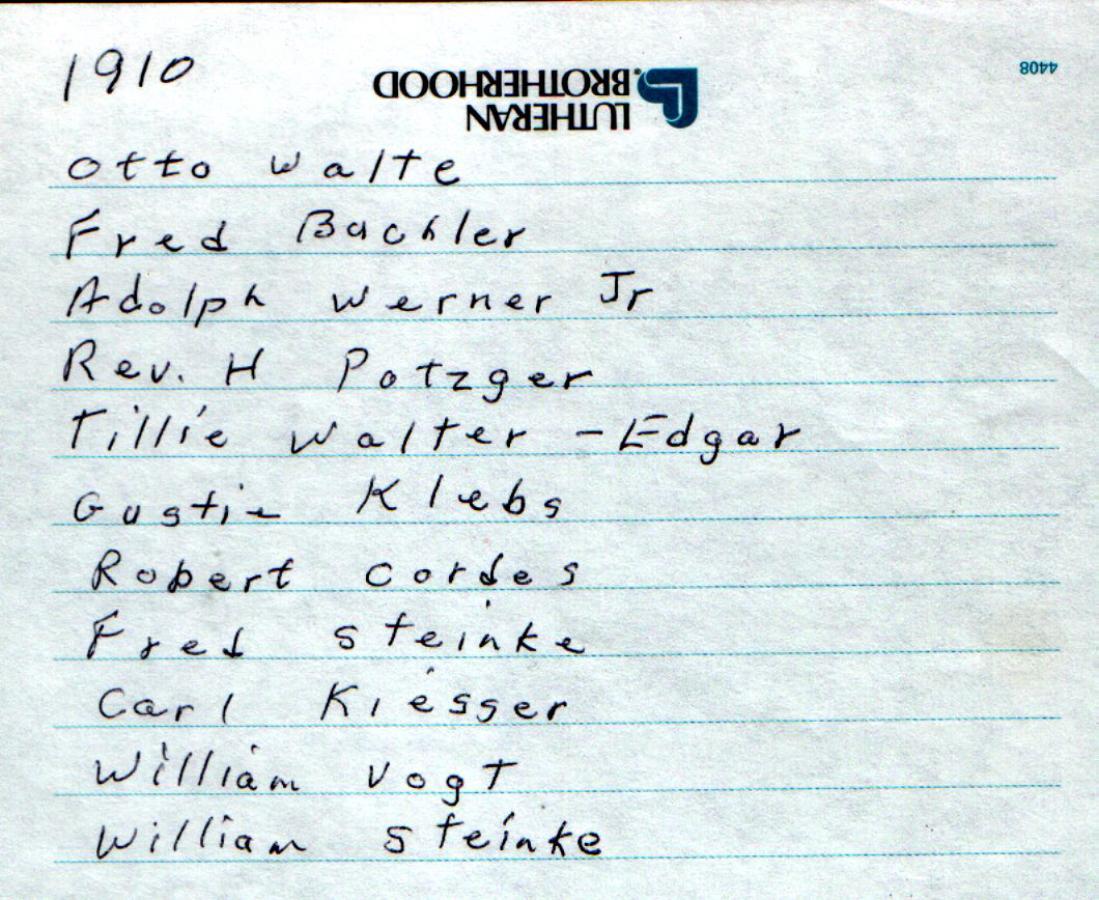 1910
LUTHERAN
BROTHERHOOD®
4408
Otto Walte
Fred Bachler
Adolph Werner Jr
Rev. H Potzger
Tillie Walter - Edgar
Gustie Klebs
Robert Cordes
Fred Steinke
Carl Kiesser
William Vogt
William Steinke